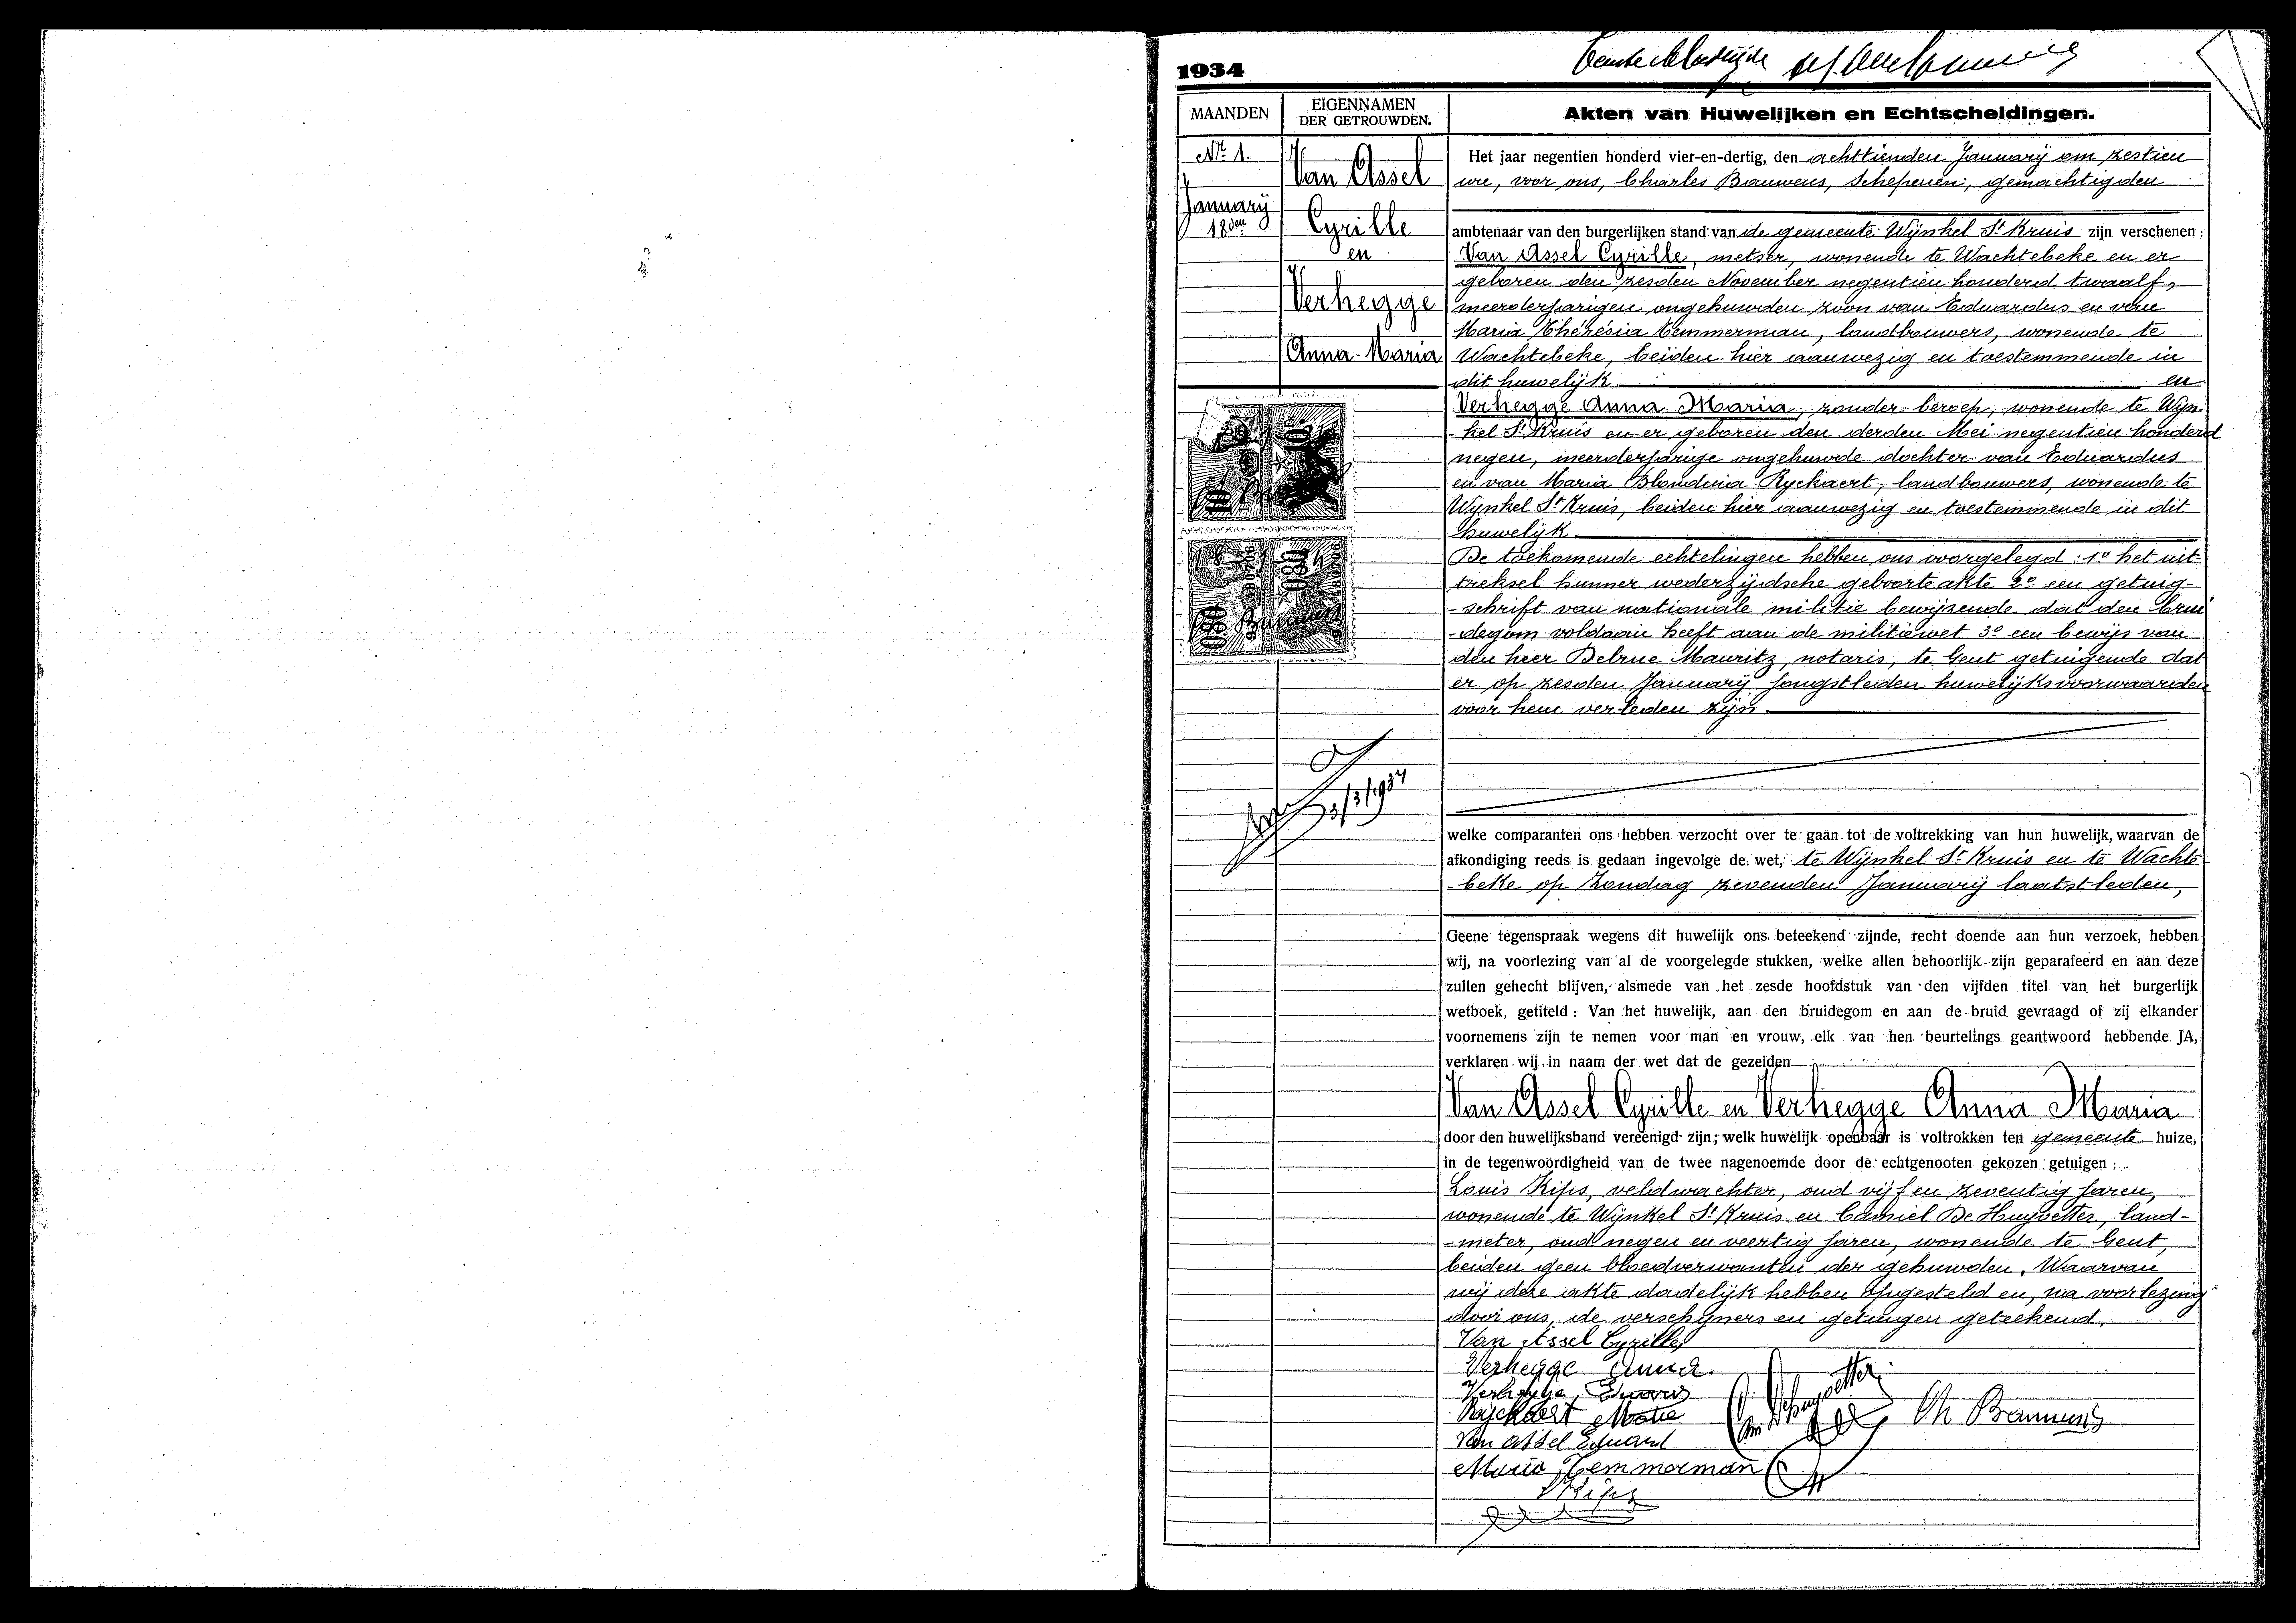 1934
MAANDEN
EIGENNAMEN
DER GETROUWDEN.
Akten van Huwelijken en Echtscheidingen.
No 1.
January
18den
Van Assel
Cyrille
en
Verhegge
Anna Maria
Het jaar negentien honderd vier-en-dertig, den achttienden January om zestien
ure, voor ons, Charles Bauwens, Schepenen, gemachtigden
ambtenaar van den burgerlijken stand van de gemeente Wynkel St Kruis zijn verschenen :
Van Assel Cyrille, metser, wonende te Wachtebeke en er
geboren den zesden November negentien honderd twaalf,
meerderjarigen ongehuwden zoon van Eduardus en van
Maria Thérésia Temmerman, landbouwers, wonende te
Wachtebeke, beiden hier aanwezig en toestemmende in
dit huwelijk. en
Verhegge Anna Maria, zonder beroep, wonende te Wyn-
-kel St Kruis en er geboren den derden Mei negentien honderd
negen, meerderjarige ongehuwde dochter van Eduardus
en van Maria Blondina Ryckaert, landbouwers, wonende te
Wynkel St Kruis, beiden hier aanwezig en toestemmende in dit
huwelijk.
De toekomende echtelingen hebben ons voorgelegd : 1o het uit-
treksel hunner wederzijdsche geboorteakte 2o een getuig-
-schrift van nationale militie bewijzende dat den brui
-degom voldaan heeft aan de militiewet 3o een bewijs van
den heer Delrue Mauritz, notaris, te Gent getuigende dat
er op zesden January jongstleden huwelijksvoorwaarden
voor hem verleden zijn.
3/3/1934
welke comparanten ons hebben verzocht over te gaan tot de voltrekking van hun huwelijk, waarvan de
afkondiging reeds is gedaan ingevolge de wet, te Wijnkel St Kruis en te Wachte
-beke op Zondag zevenden January laatstleden,
Geene tegenspraak wegens dit huwelijk ons beteekend zijnde, recht doende aan hun verzoek, hebben
wij, na voorlezing van al de voorgelegde stukken, welke allen behoorlijk zijn geparafeerd en aan deze
zullen gehecht blijven, alsmede van het zesde hoofdstuk van den vijfden titel van het burgerlijk
wetboek, getiteld : Van het huwelijk, aan den bruidegom en aan de bruid gevraagd of zij elkander
voornemens zijn te nemen voor man en vrouw, elk van hen beurtelings geantwoord hebbende JA,
verklaren wij in naam der wet dat de gezeiden
Van Assel Cyrille en Verhegge Anna Maria
door den huwelijksband vereenigd zijn; welk huwelijk openbaar is voltrokken ten gemeente huize,
in de tegenwoordigheid van de twee nagenoemde door de echtgenooten gekozen getuigen :
Louis Kips, veldwachter, oud vijf en zeventig jaren,
wonende te Wijnkel St Kruis en Camiel De Huyvetter, land-
-meter, oud negen en veertig jaren, wonende te Gent,
beiden geen bloedverwanten der gehuwden. Waarvan
wij deze akte dadelijk hebben opgesteld en, na voorlezing
door ons, de verschijners en getuigen geteekend.
Van Assel Cyrille
Verhegge Anna
Verhegge, Edward
Ryckaert Marie
Van Assel Eduard
Maria Temmerman
Kips
Ch Bauwens